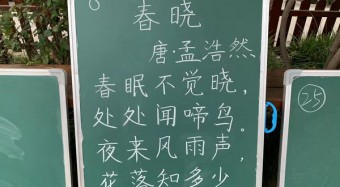 春晓
唐·孟浩然
春眠不觉晓，
处处闻啼鸟。
夜来风雨声，
花落知多少
25